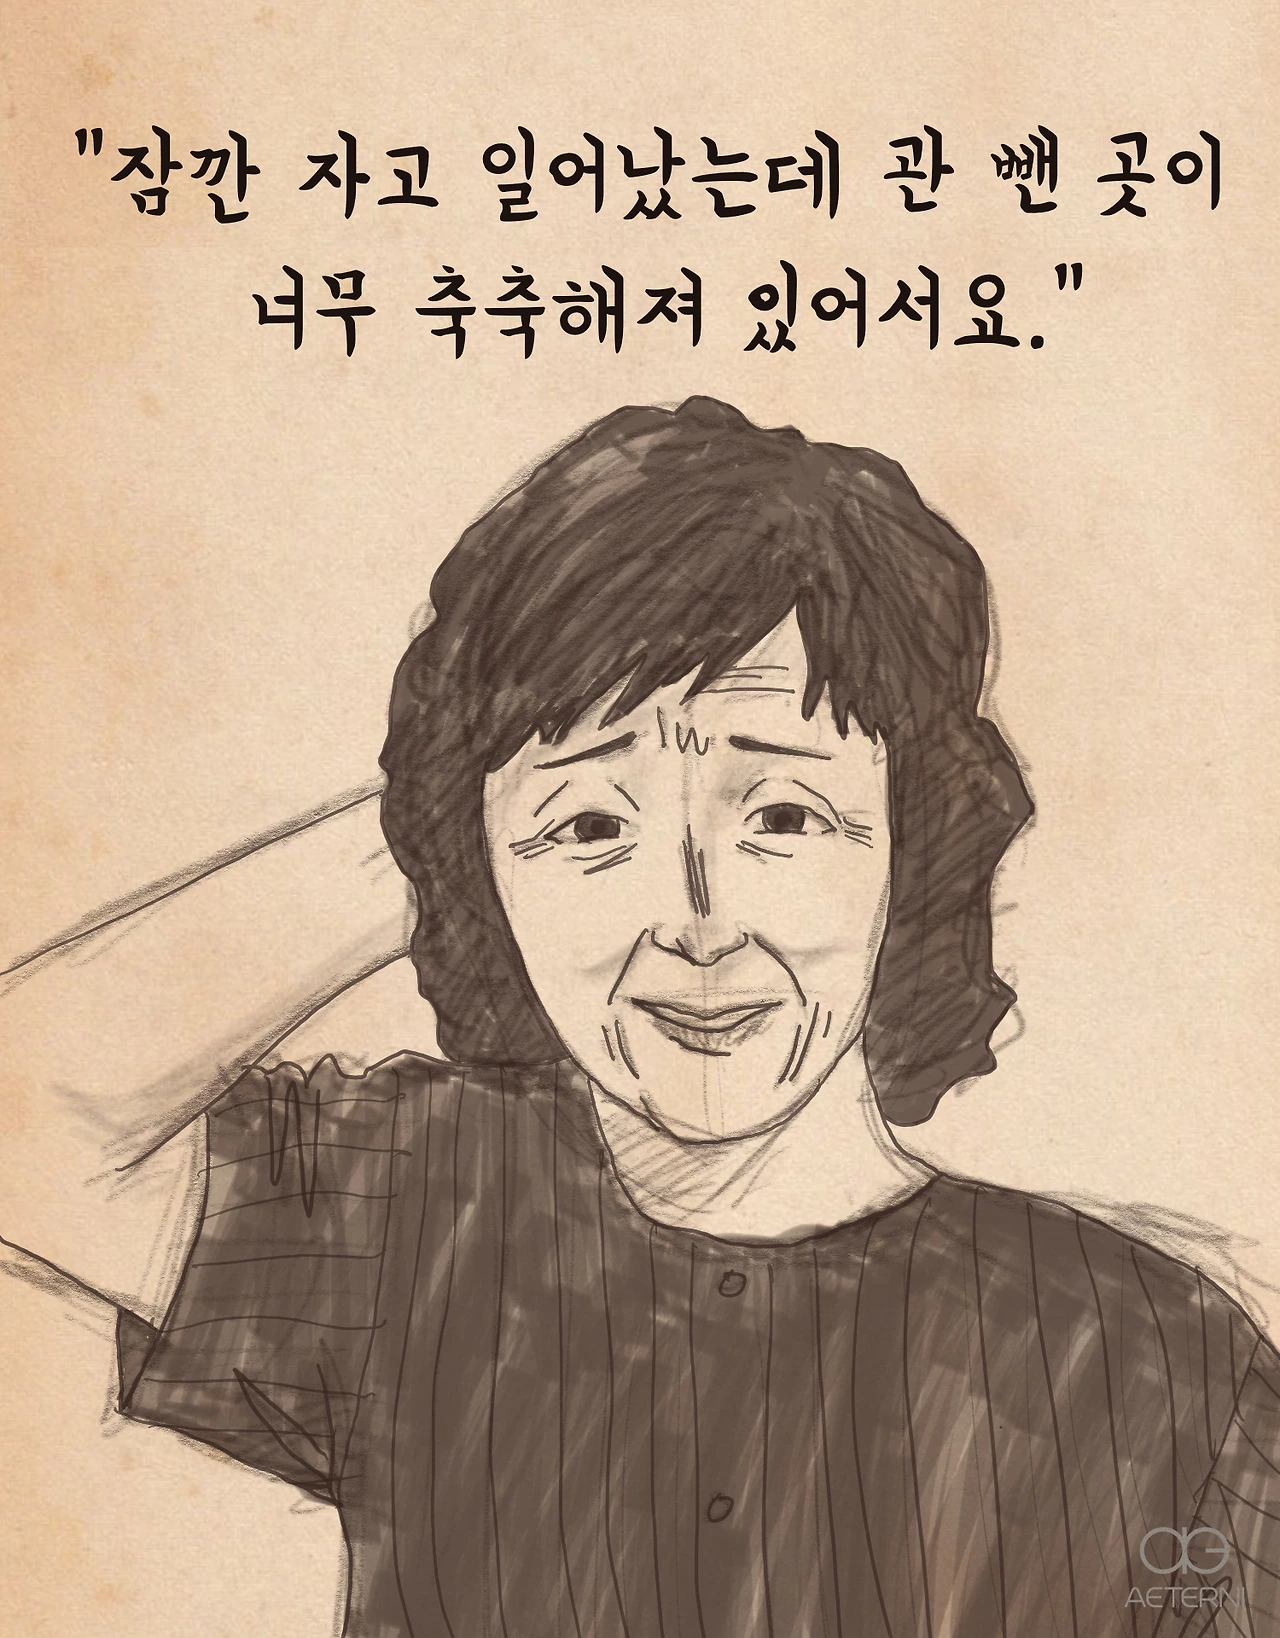 "잠깐 자고 일어났는데 관 뺀 곳이
너무 축축해져 있어서요."
AETERNI